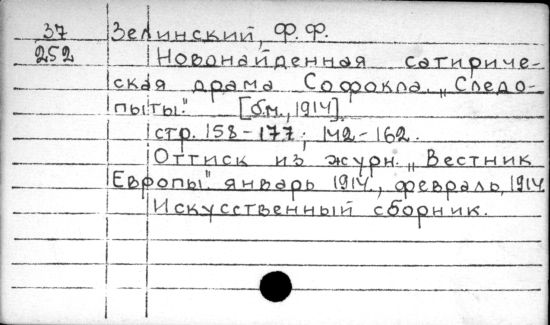 37 Зелинский, Ф. Ф.
252 Новонайденная сатириче-
ская драма Софокла „Следо-
пыты." [б.м., 1914].
стр. 158-177; 142-162.
Оттиск из журн. „Вестник
Европы" январь 1914., февраль, 1914
Искусственный сборник.